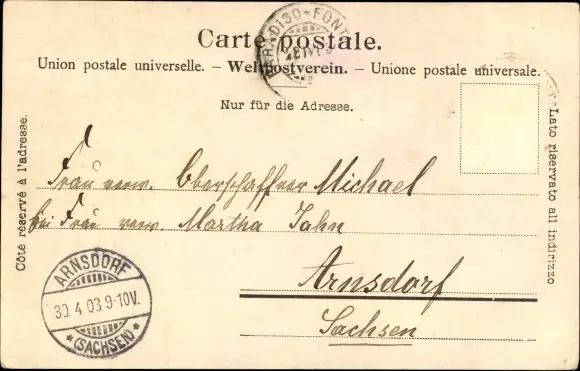 PARADISO-FONT
Carte postale.
Union postale universelle. – Weltpostverein. – Unione postale universale.
Nur für die Adresse.
Côté réservé à l'adresse.
Lato riservato all indirizzo
Frau verw. Oberschaffner Michael
bei Frau verw. Martha Jahn
Arnsdorf
Sachsen
ARNSDORF
30 4 03 9-10V.
* (SACHSEN) *